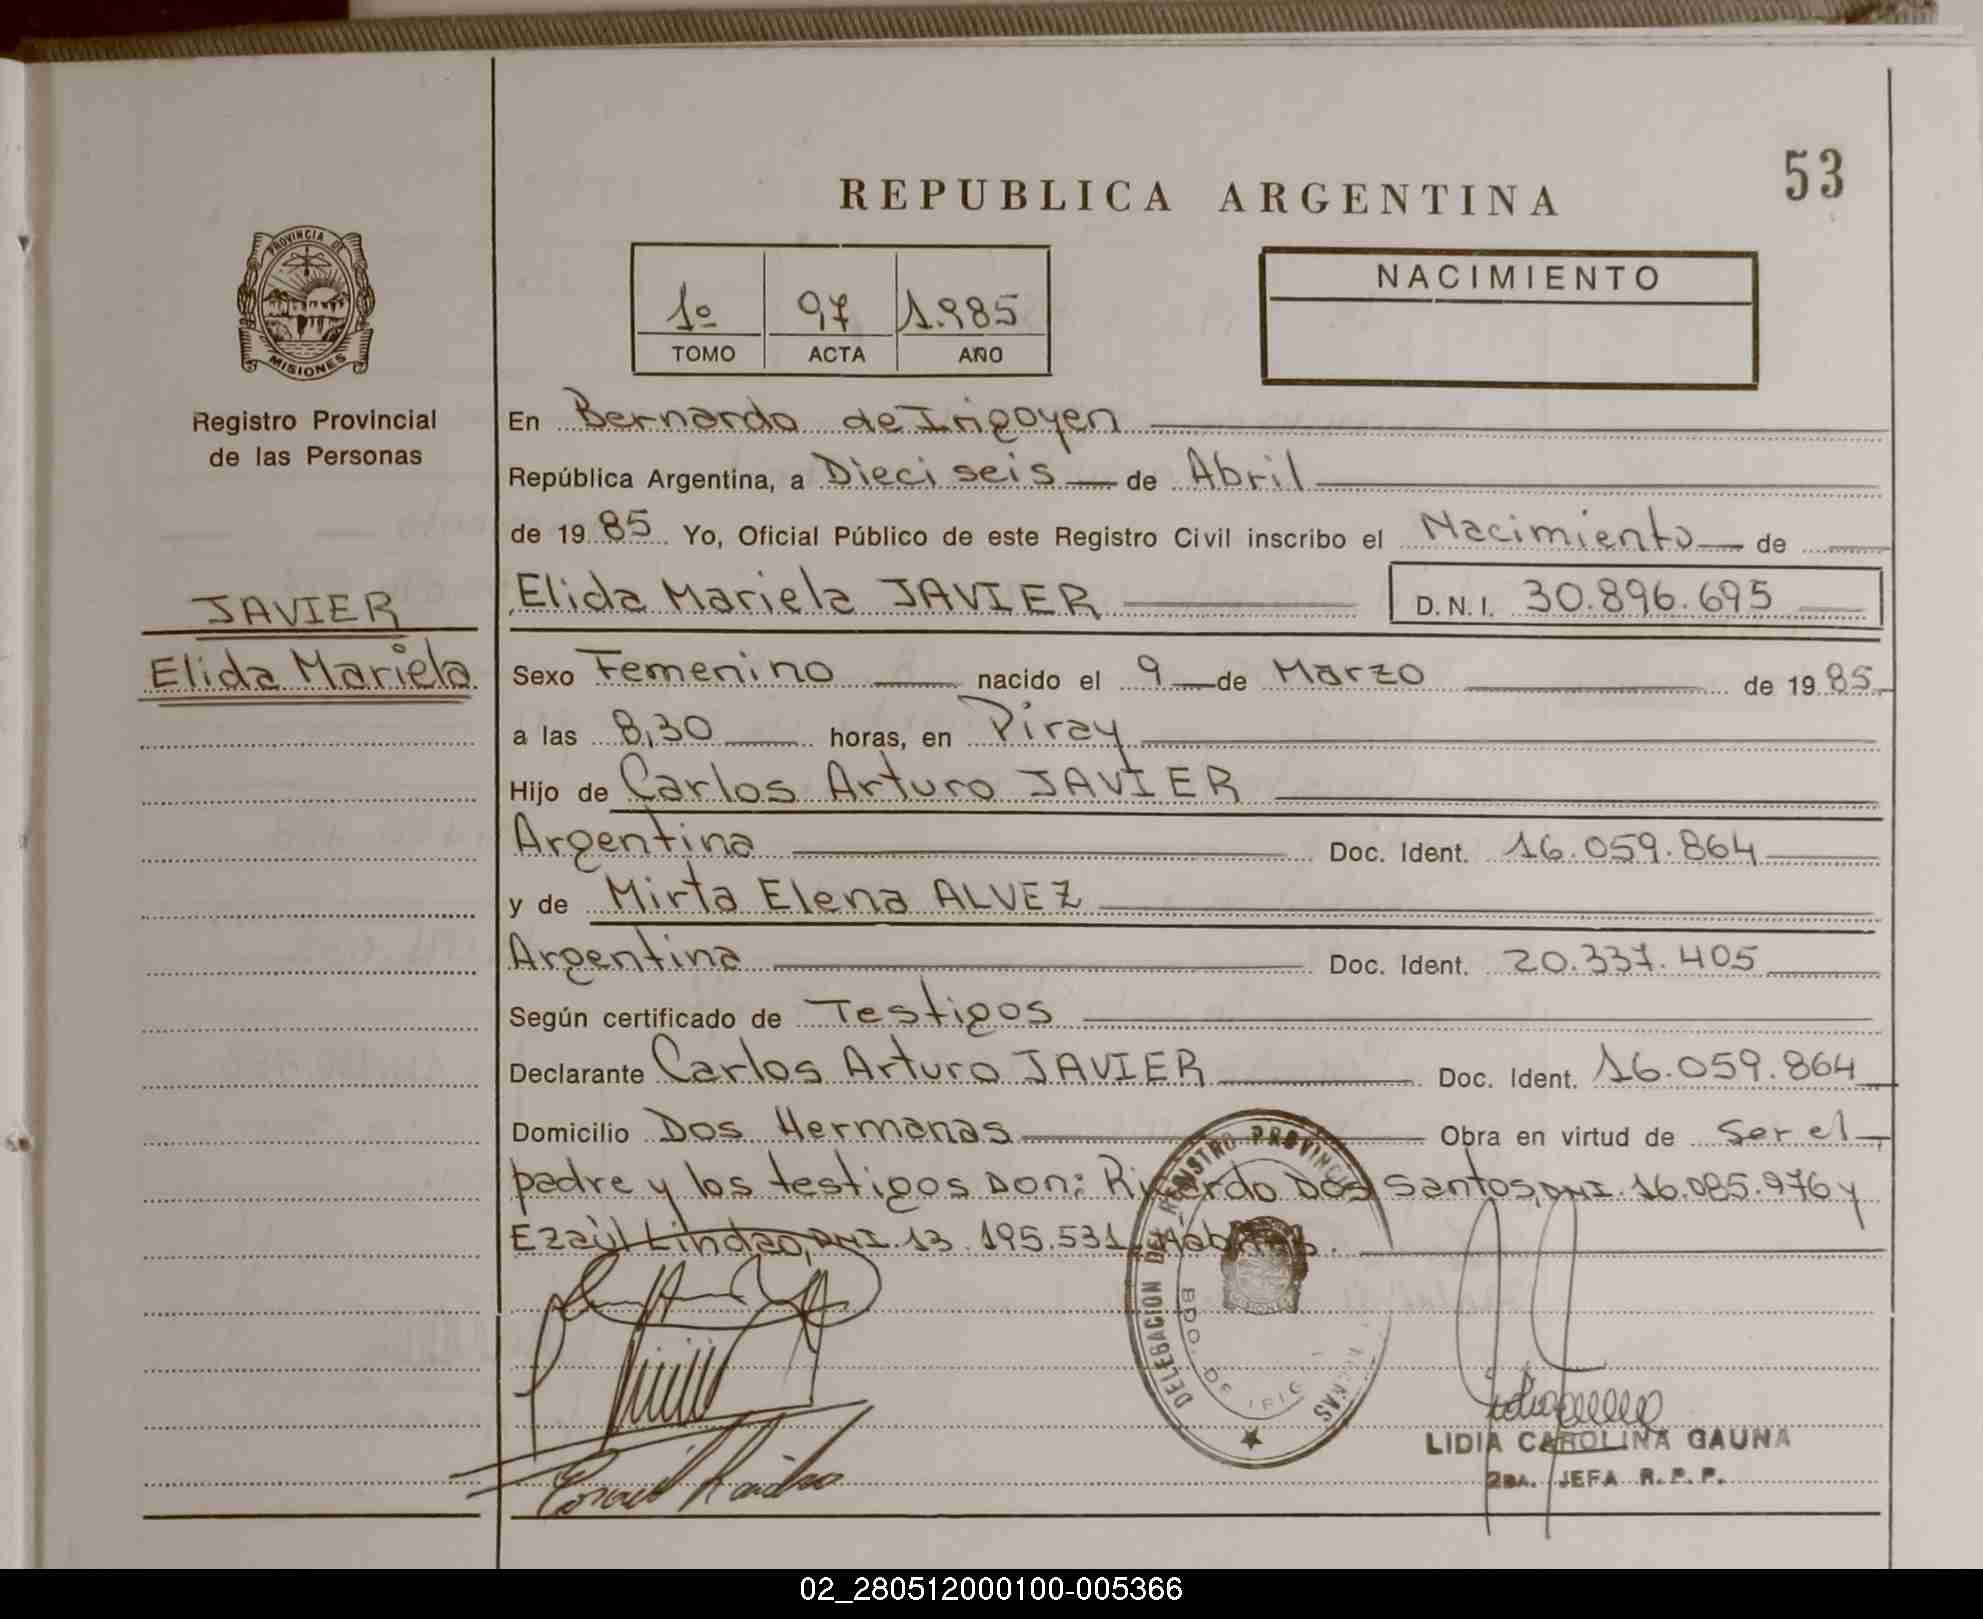 53
REPUBLICA ARGENTINA
PROVINCIA DE
MISIONES
Registro Provincial
de las Personas
1º 97 1.985
TOMO ACTA AÑO
NACIMIENTO
En Bernardo de Irigoyen
República Argentina, a Dieciseis de Abril
de 1985 Yo, Oficial Público de este Registro Civil inscribo el Nacimiento de
JAVIER
Elida Mariela
Elida Mariela JAVIER D.N.I. 30.896.695
Sexo Femenino nacido el 9 de Marzo de 1985
a las 8,30 horas, en Piray
Hijo de Carlos Arturo JAVIER
Argentina Doc. Ident. 16.059.864
y de Mirta Elena ALVEZ
Argentina Doc. Ident. 20.337.405
Según certificado de Testigos
Declarante Carlos Arturo JAVIER Doc. Ident. 16.059.864
Domicilio Dos Hermanas Obra en virtud de Ser el
padre y los testigos Don: Ricardo Dos Santos, DNI. 16.085.976 y
Ezaúl Lindao, DNI. 13.195.531. Hábiles.
DELEGACION DEL REGISTRO PROVINCIAL PERSONAS
BDO. DE IRIG
LIDIA CAROLINA GAUNA
2DA. JEFA R. P. P.
02_280512000100-005366